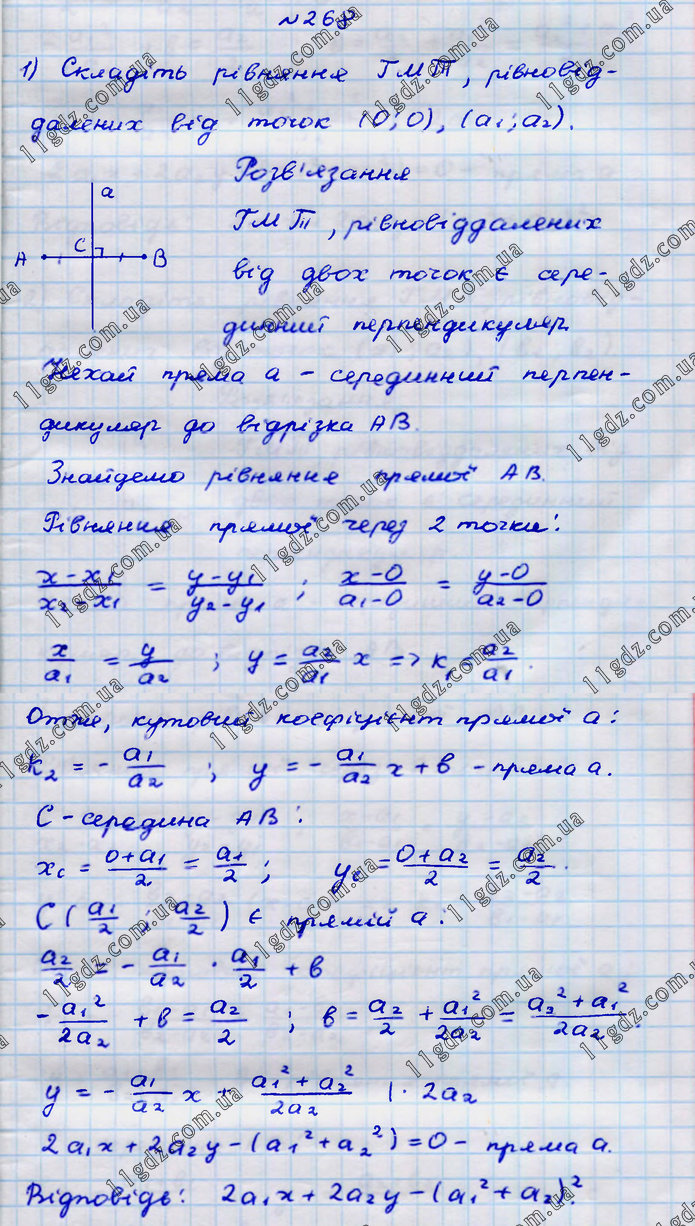 №268
1) Складіть рівняння ГМТ, рівновід-
далених від точок (0;0), (a₁;a₂).
Розв'язання
ГМТ, рівновіддалених
від двох точок є сере-
динний перпендикуляр
a
A C B
Нехай пряма a - серединний перпен-
дикуляр до відрізка AB.
Знайдемо рівняння прямої AB.
Рівняння прямої через 2 точки:
(x-x₁)/(x₂-x₁) = (y-y₁)/(y₂-y₁) ; (x-0)/(a₁-0) = (y-0)/(a₂-0)
x/a₁ = y/a₂ ; y = a₂/a₁ x => k₁ = a₂/a₁.
Отже, кутовий коефіцієнт прямої a:
k₂ = - a₁/a₂ ; y = - a₁/a₂ x + в - пряма a.
C - середина AB:
x_c = (0+a₁)/2 = a₁/2 ; y_c = (0+a₂)/2 = a₂/2.
C (a₁/2 ; a₂/2) є прямій a:
a₂/2 = - a₁/a₂ · a₁/2 + в
- a₁²/2a₂ + в = a₂/2 ; в = a₂/2 + a₁²/2a₂ = (a₂² + a₁²)/2a₂.
y = - a₁/a₂ x + (a₁² + a₂²)/2a₂ | · 2a₂
2a₁x + 2a₂y - (a₁² + a₂²) = 0 - пряма a.
Відповідь: 2a₁x + 2a₂y - (a₁² + a₂)².
11gdz.com.ua